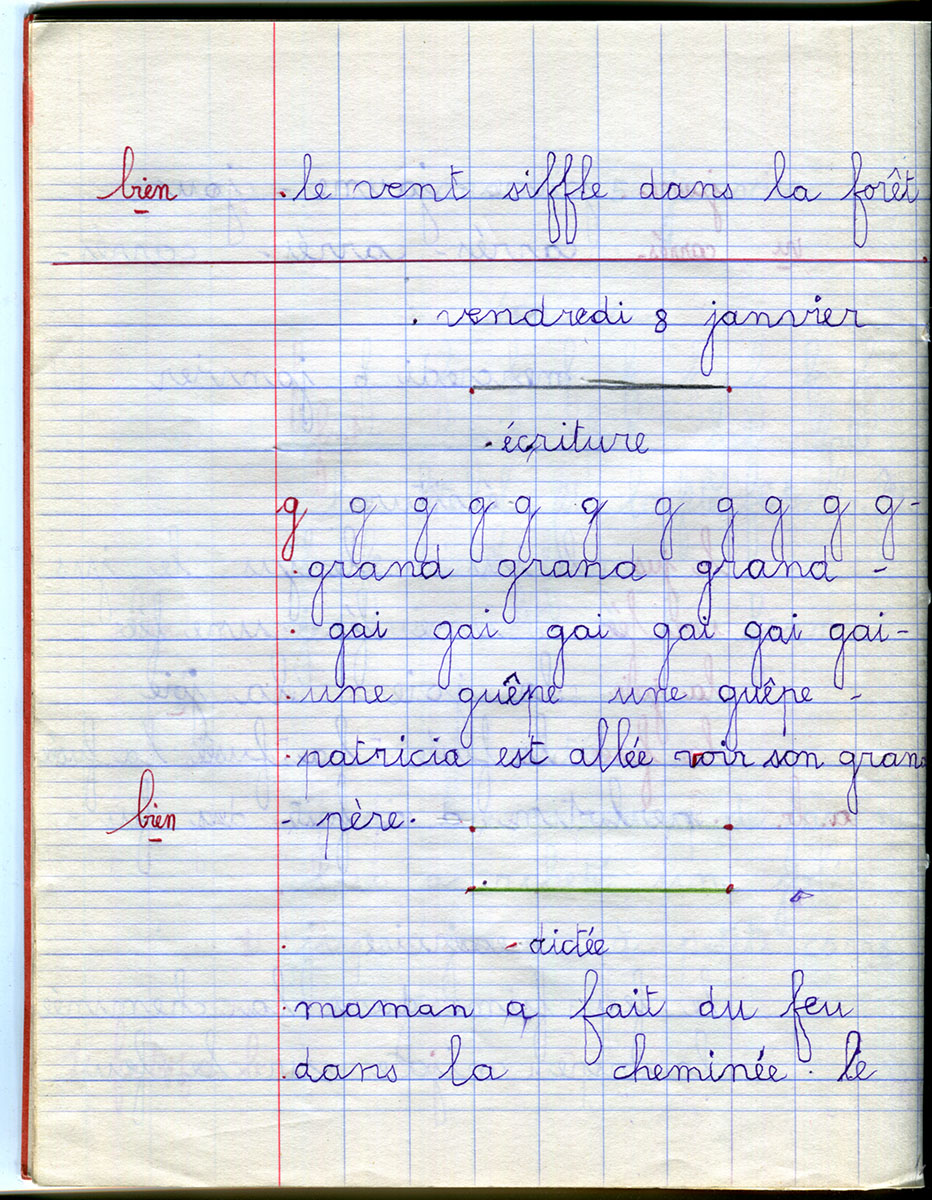 bien . le vent siffle dans la forêt
. vendredi 8 janvier
. écriture
g g g g g g g g g g g -
. grand grand grand -
. gai gai gai gai gai gai -
. une guêpe une guêpe -
. patricia est allée voir son grand
bien - père .
- dictée
. maman a fait du feu
. dans la cheminée . le